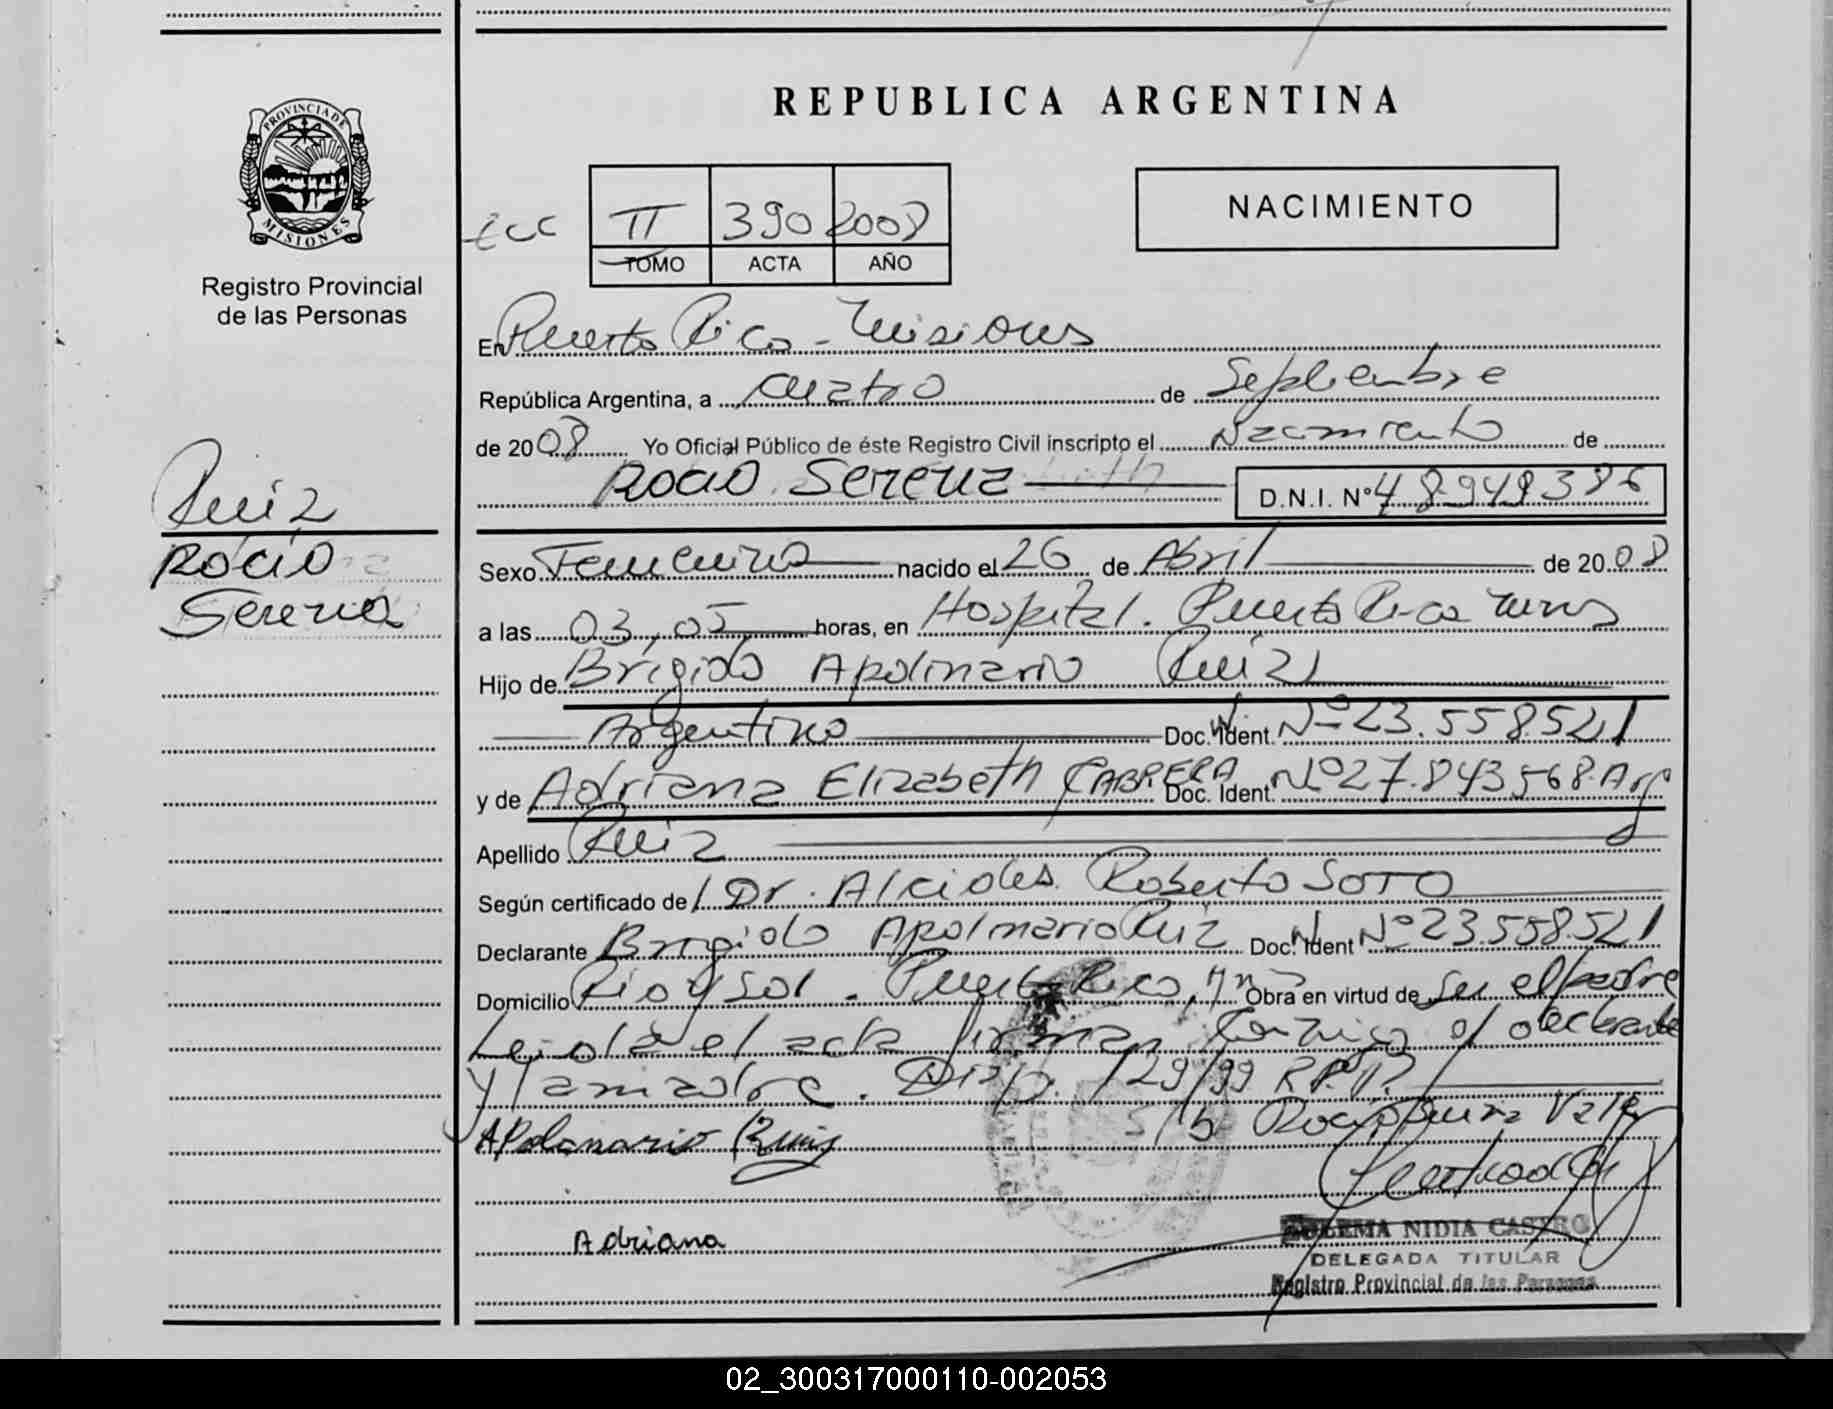 REPUBLICA ARGENTINA
PROVINCIA DE
MISIONES
Registro Provincial
de las Personas
II 390 2008
TOMO ACTA AÑO
NACIMIENTO
En Puerto Rico - Misiones
República Argentina, a cuatro de Septiembre
de 2008 Yo Oficial Público de éste Registro Civil inscripto el Nacimiento de
Rocio Serena
D.N.I. Nº 48949386
Ruiz
Rocio
Serena
Sexo Femenino nacido el 26 de Abril de 2008
a las 03,05 horas, en Hospital. Puerto Rico Mnes
Hijo de Brigido Apolinario Ruiz
Argentino Doc. Ident. Nº 23.558.521
y de Adriana Elizabeth CABRERA Doc. Ident. Nº 27.843.568. Arg
Apellido Ruiz
Según certificado del Dr. Alcides Roberto SOTO
Declarante Brigido Apolinario Ruiz Doc. Ident Nº 23.558.521
Domicilio Rio y Sol. Puerto Rico, Mnes Obra en virtud de ser el padre
Leida el acta firman conmigo el declarante
y la madre. Disp. 129/99 R.P.P.
S/b Rocio
Apolanario Ruiz
Adriana
ZULEMA NIDIA CASTRO
DELEGADA TITULAR
Registro Provincial de las Personas
02_300317000110-002053